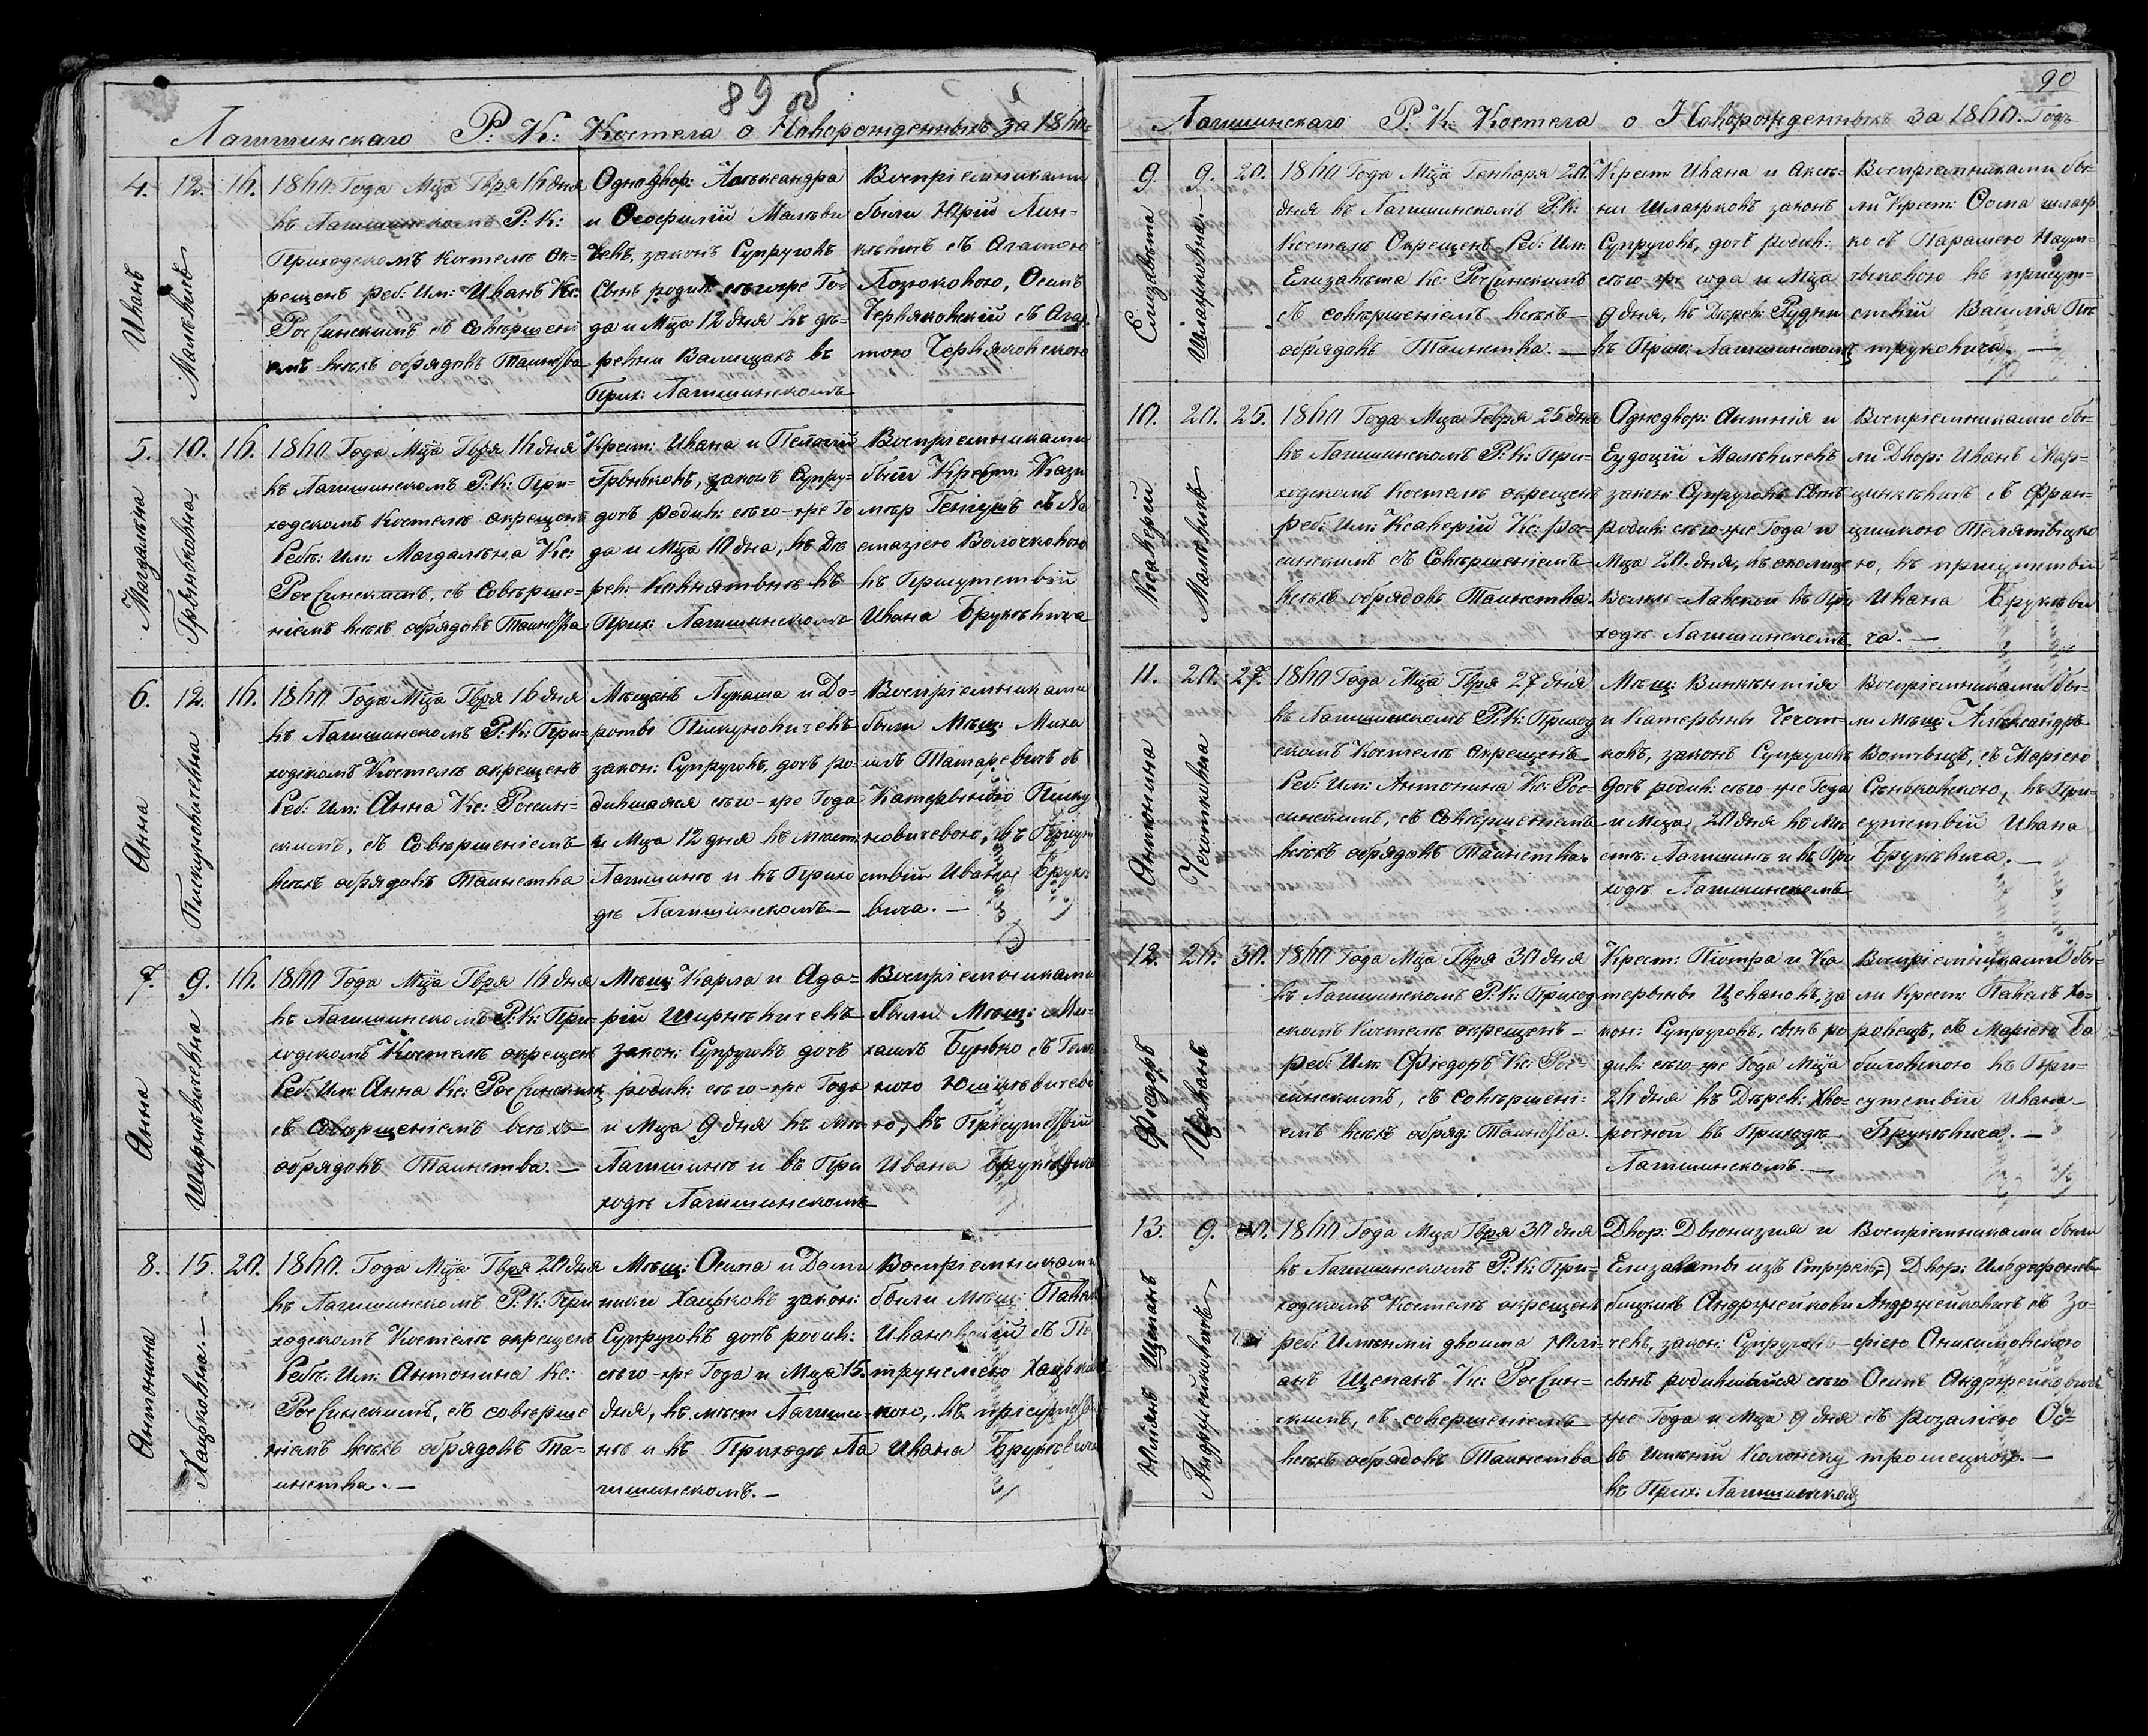 89 об
Лагишинскаго Р: К: Костела о Новорожденныхъ за 1860=
4.
12.
16.
Иванъ
Малѣвичъ
1860 Года Мца Гвря 16 дня
въ Лагишинскомъ Р: К:
Приходскомъ Костелѣ Ок=
рещенъ реб: Им: Иванъ Кс:
Россинскимъ съ Совершені
емъ всѣхъ обрядовъ Таинства
Однодвор: Александра
и Ѳеофилій Малѣви
чевъ, закон Супруговъ
Сынъ родив: сего-же Го-
да и Мца 12 дня въ де-
ревни Валищахъ въ
Прих: Лагишинскомъ
Воспріемниками
были Юрій Лин-
кѣвичъ съ Агатою
Позюковою, Осипъ
Червяковскій съ Ага-
тою Червяковскою
5.
10.
16.
Магдалѣна
Грынѣвовна
1860 Года Мца Гвря 16 дня
въ Лагишинскомъ Р: К: При-
ходскомъ Костелѣ окрещенъ
Ребъ: Им: Магдалѣна Кс:
Россинскимъ, съ Соверше-
ніемъ всѣхъ обрядовъ Таинства
Крест: Ивана и Пелагій
законъ Супру-
дочь родив: сего-же Го
да и Мца 10 дня, въ Де
рев: въ
Прих: Лагишинском
Воспріемниками
были Крест: Кази
міръ съ На
стазіею Волочковою
въ Присутствій
Ивана Брукѣвича
6.
12.
16.
Анна
Пискуновичевна
1860 Года Мца Гвря 16 дня
въ Лагишинскомъ Р: К: При-
ходскомъ Костелѣ окрещенъ
Реб: Им: Анна Кс: Россин-
скимъ, съ Совершеніемъ
всѣхъ обрядовъ Таинства
Мѣщанъ Лукаша и До-
роты Пискуновичевъ
закон: Супруговъ, дочь ро-
дившаяся сего-же Года
и Мца 12 дня въ мѣст:
Лагишинѣ и въ Прихо
дѣ Лагишинскомъ
Воспріемниками
были Мѣщ: Миха
илъ Татаревичъ съ
Катерыною Писку
новичевою, въ Присут
ствій Ивана Брукѣ
вича. —
7.
9.
16.
Анна
Ширнѣвичевна
1860 Года Мца Гвря 16 дня
въ Лагишинскомъ Р: К: При-
ходскомъ Костелѣ окрещенъ
Реб: Им: Анна Кс: Россинскимъ
съ Совершеніемъ всѣхъ
обрядовъ Таинства. —
Мѣщ: Карла и Ада=
рій Ширнѣвичевъ
закон: Супруговъ дочь
родив: сего-же Года
и Мца 9 дня въ Мѣ
Лагишинѣ и въ При
ходѣ Лагишинскомъ
Воспріемниками
были Мѣщ: Ми-
хаилъ Бунько съ
во
ю, въ Присутствій
Ивана Брукѣвича
8.
15.
20.
Антонина
Хацковна. —
1860. Года Мца Гвря 20 дня
въ Лагишинскомъ Р: К: При
ходскомъ Костелѣ окрещенъ
Ребъ: Им: Антонина Кс:
Россинскимъ, съ соверше
ніемъ всѣхъ обрядовъ Та-
инства. —
Мѣщ: Осипа и Доми
ники Хацковъ закон:
Супруговъ дочь родив:
сего-же Года и Мца 15.
дня, въ мѣст Лагиши-
нѣ и въ Приходѣ Ла
гишинскомъ. —
Воспріемниками
были Мѣщ:
Ивановскій съ Пе
трунелею Хацков
ною, въ присутств
Ивана Брукѣвича
90
Лагишинскаго Р: К: Костела о Новорожденныхъ за 1860. Годъ
9.
9.
20.
Елизавѣта
Шлапковна. —
1860 Года Мца Генваря 20.
дня въ Лагишинскомъ Р: К:
Костелѣ Окрещенъ Реб: Им:
Елизавѣта Кс: Россинскимъ
съ совершеніемъ всѣхъ
обрядовъ Таинства. —
Крест: Ивана и Аксѣ-
ни Шлапковъ законъ
Супруговъ, дочь родив:
сего-же года и Мца
9 дня, въ Дерев: Рудни
въ Прих: Лагишинскомъ
Воспріемниками бы-
ли Крест: Ѳома Шлап
ко съ Парасею Наум-
чыковою въ присут-
ствій Василія Пе
труковича. —
10.
20.
25.
Ксаверій
Малѣвичъ
1860 Года Мца Гевря 25 дня
въ Лагишинскомъ Р: К: При-
ходскомъ Костелѣ окрещенъ
реб: Им: Ксаверій Кс: Рос-
синскимъ съ Совершеніемъ
всѣхъ обрядовъ Таинства.
Однодвор: Антонія и
Еудоцій Малѣвичевъ
закон: Супруговъ Сынъ
родив: сего-же Года и
Мца 20. дня, въ околице
въ При
ходѣ Лагишинскомъ
Воспріемниками бы-
ли Двор: Иванъ Мар-
цинкѣвичъ съ Фран-
цишкою Телятыцко
ю, въ присутствій
Ивана Брукѣви
ча. —
11.
20.
27.
Антонина
Чечотковна
1860 Года Мца Гвря 27 дня
въ Лагишинскомъ Р: К: Приход
скомъ Костелѣ окрещенъ
Реб: Им: Антонина Кс: Рос-
синскимъ, съ Совершеніемъ
всѣхъ обрядовъ Таинства.
Мѣщ: Винкѣнтія
и Катерыны Чечот-
ковъ, законъ Супруговъ
Дочь родив: сего же Года
и Мца, 20 дня въ Мѣ
стѣ: Лагишинѣ и въ При
ходѣ Лагишинскомъ
Воспріемниками бы-
ли Мѣщ: Александръ
съ Маріею
Сеньковскою, въ При-
сутствій Ивана
Брукѣвича. —
12.
26.
30.
Фіедоръ
Цеванъ
1860 Года Мца Гвря 30 дня
въ Лагишинскомъ Р: К: Приход
скомъ Костелѣ окрещенъ —
реб: Им: Фіедоръ Кс: Рос-
синскимъ, съ совершені-
емъ всѣхъ обряд: Таинства.
Крест: Піотра и Ка
терыны Цевановъ, за
кон: Супруговъ, сынъ ро
див: сего-же Года Мца
26 дня въ Дерев: Хво-
росной въ Приходѣ
Лагишинскомъ. —
Воспріемниками бы-
ли Крест: Павелъ Хо-
ровецъ, съ Маріею Ба
биловскою въ При-
сутствій Ивана
Брукѣвича. —
13.
9.
30.
Юліянъ Щепанъ
Андржейковичъ
1860 Года Мца Гвря 30 дня
въ Лагишинскомъ Р: К: При-
ходскомъ Костелѣ окрещенъ
реб: Именми двоима Юлі-
анъ Щепанъ Кс: Россин-
скимъ, съ совершеніемъ
всѣхъ обрядовъ Таинства
Двор: Дыонизія и
Елизаветы изъ
Андржейкови
чевъ, закон: Супруговъ
сынъ родившыйся сего
же Года и Мца 9 дня
въ Имѣній Колонску
въ Прих: Лагишинском
Воспріемниками были
Двор: Ильдефонсъ
Андржейковичъ съ Зо-
фіею Анихимовскою
Осипъ Андржейковичъ
съ Розаліею Ос-
тромецкою. —